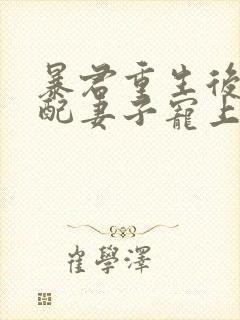 暴君重生後
配妻子寵上
崔學澤